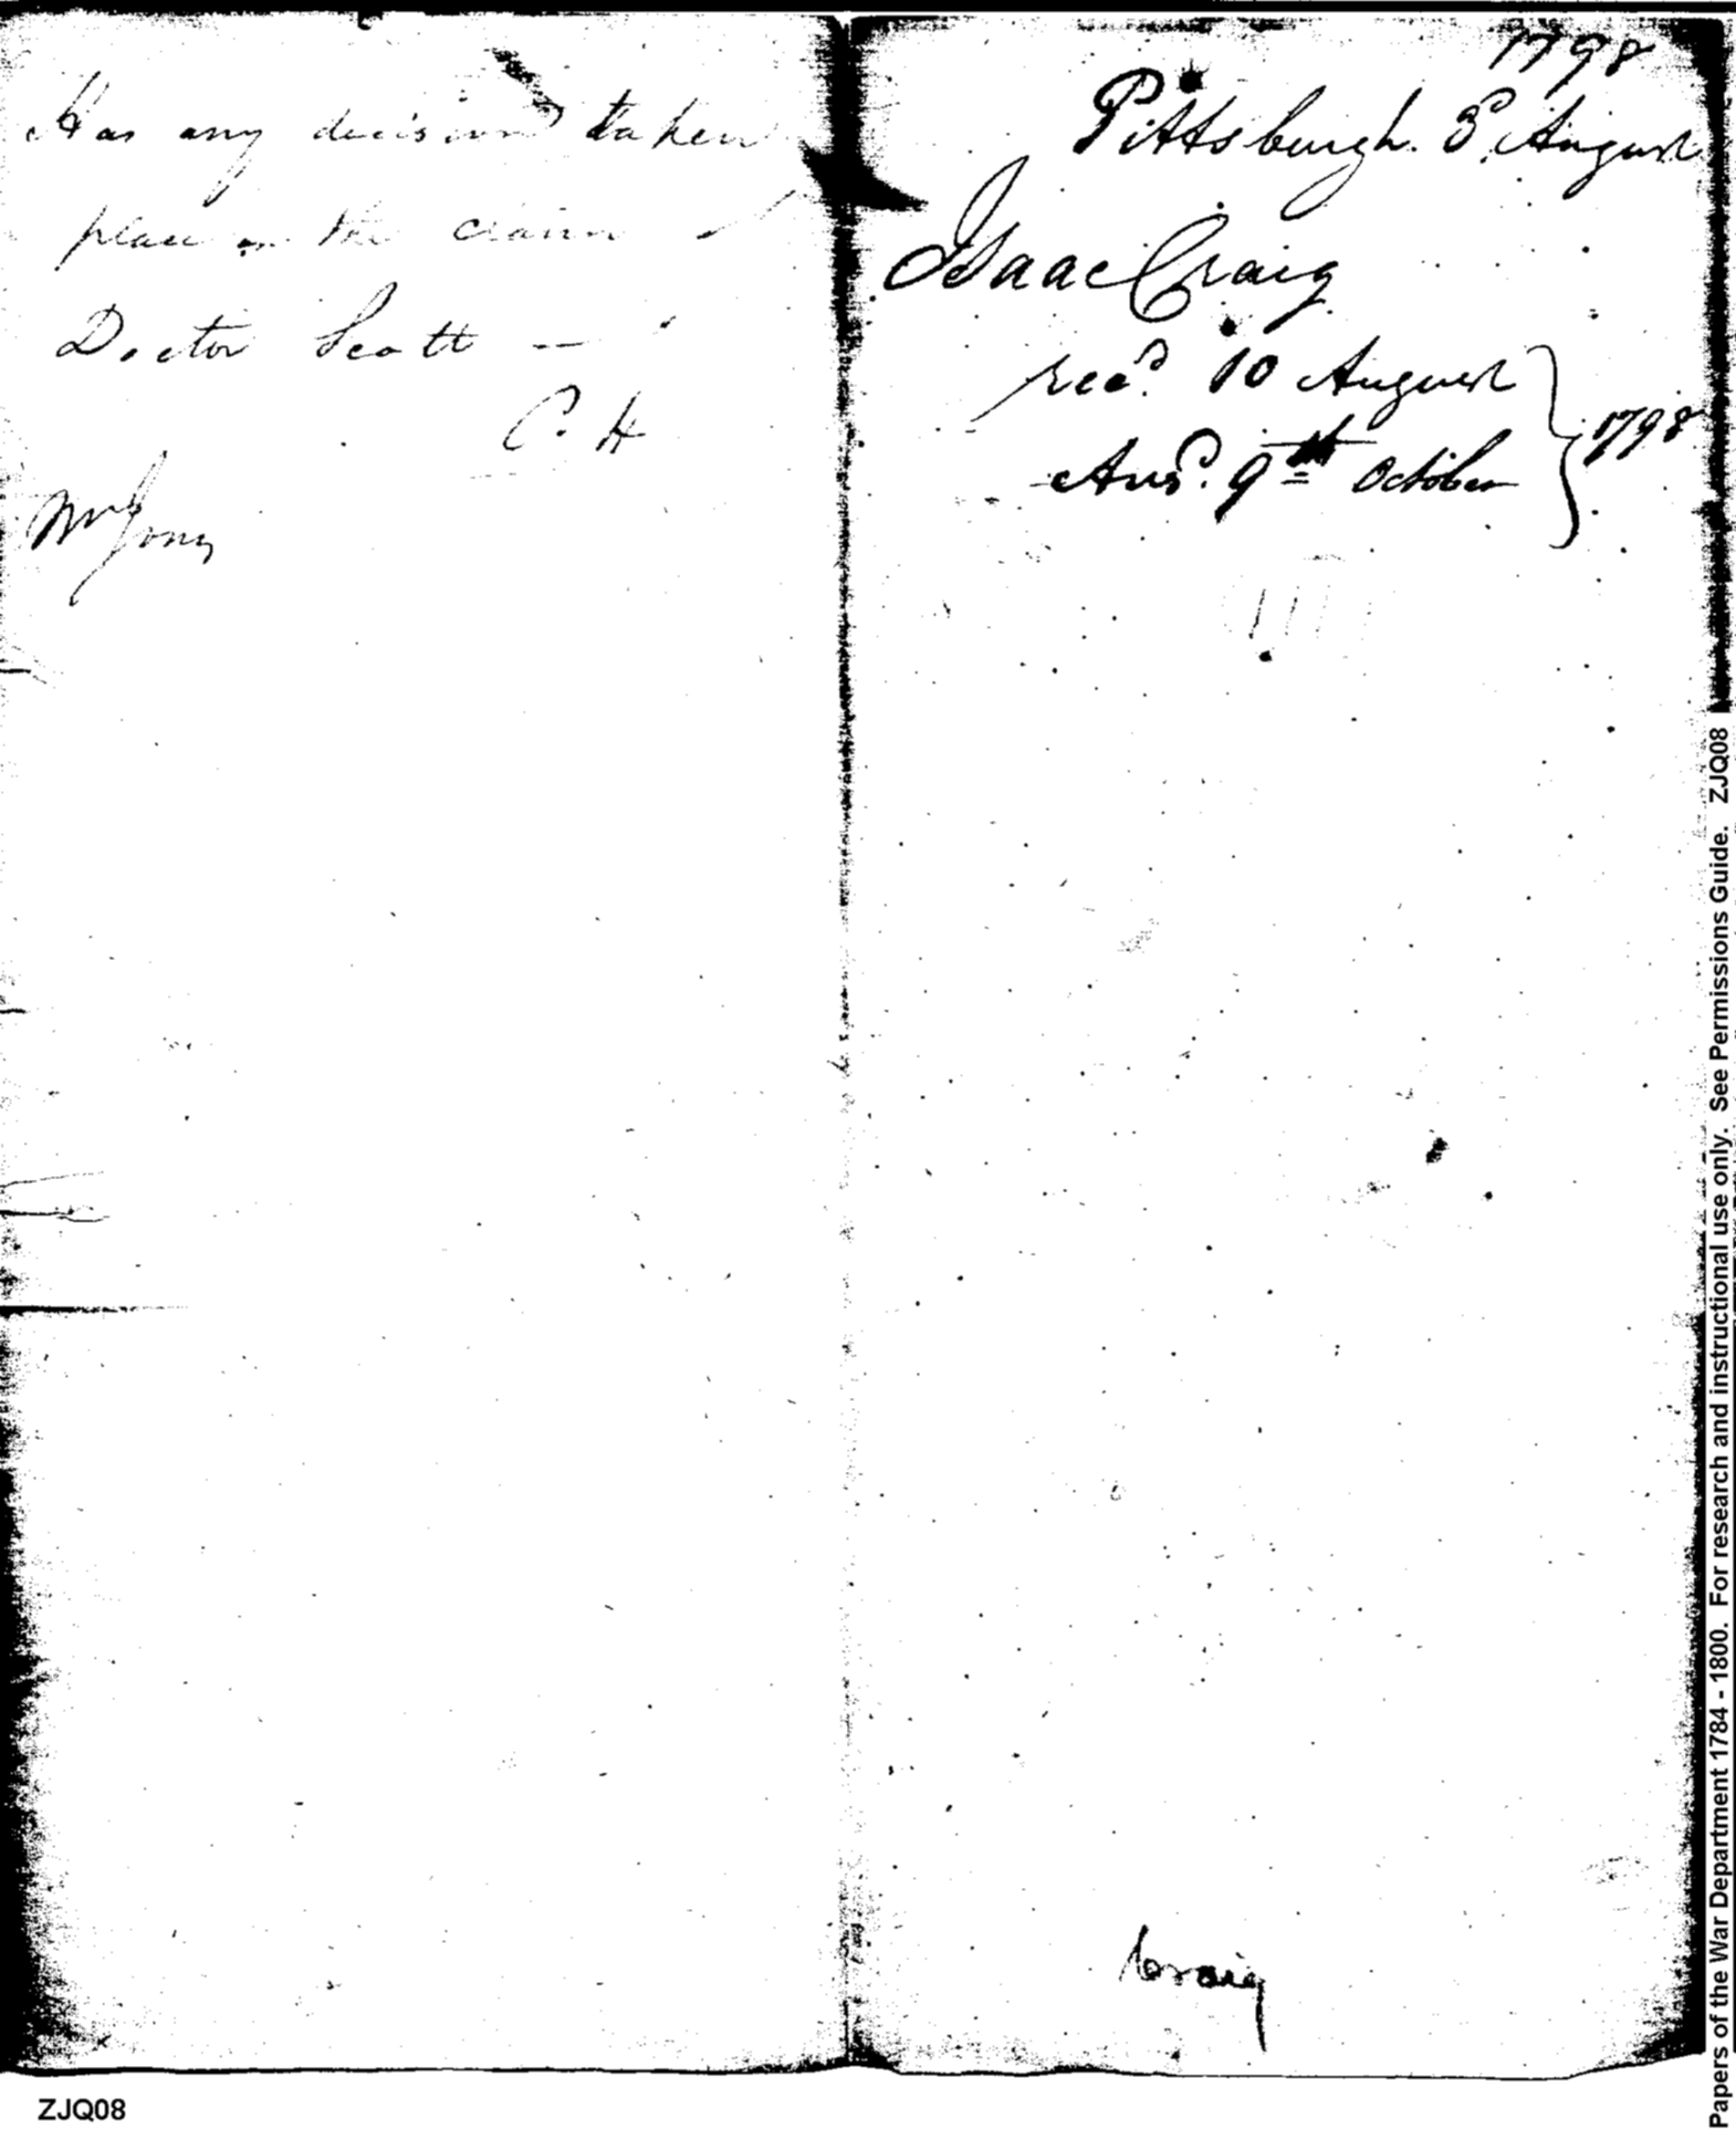 Has any decision taken
place on the claim of
Doctor Scott —
C. H
Mr Jones
1798
Pittsburgh. 3d. August
Isaac Craig
recd. 10 August
Ansd. 9th October
1798
Craig
ZJQ08
Papers of the War Department 1784 - 1800. For research and instructional use only. See Permissions Guide. ZJQ08